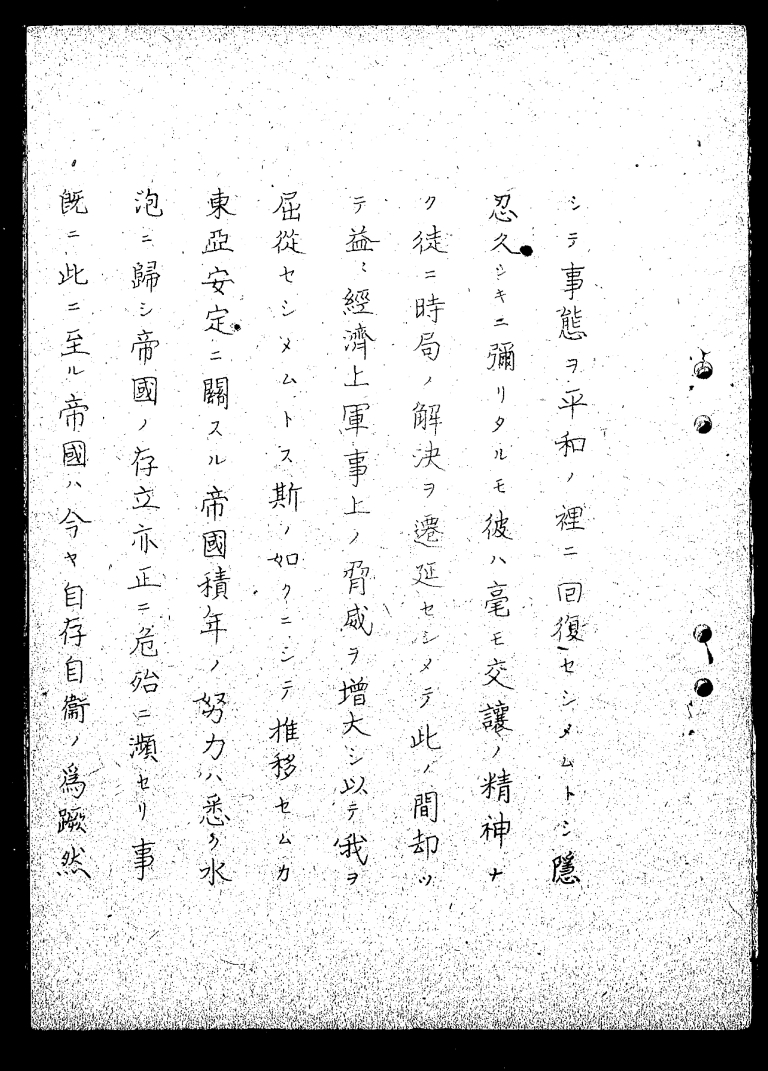 シテ事態ヲ平和ノ裡ニ回復セシメムトシ隱
忍久シキニ彌リタルモ彼ハ毫モ交讓ノ精神ナ
ク徒ニ時局ノ解決ヲ遷延セシメテ此ノ間却ツ
テ益〻經濟上軍事上ノ脅威ヲ增大シ以テ我ヲ
屈從セシメムトス斯ノ如クニシテ推移セムカ
東亞安定ニ關スル帝國積年ノ努力ハ悉ク水
泡ニ歸シ帝國ノ存立亦正ニ危殆ニ瀕セリ事
旣ニ此ニ至ル帝國ハ今ヤ自存自衞ノ爲蹶然